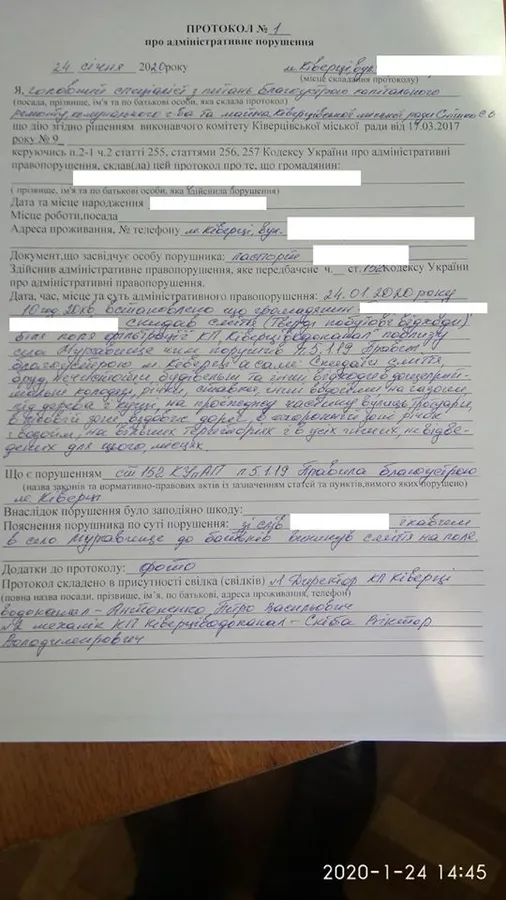 ПРОТОКОЛ № 1
про адміністративне порушення
24 січня 2020 року м. Ківерці, вул.
(місце складання протоколу)
Я, головний спеціаліст з питань благоустрою капітального
(посада, прізвище, ім'я та по батькові особи, яка склала протокол)
ремонту комунального г-ва та майна Ківерцівської міської ради С.О.
що дію згідно рішенням виконавчого комітету Ківерцівської міської ради від 17.03.2017
року № 9
керуючись п.2-1 ч.2 статті 255, статтями 256, 257 Кодексу України про адміністративні
правопорушення, склав(ла) цей протокол про те, що громадянин:
( прізвище, ім'я та по батькові особи, яка здійснила порушення)
Дата та місце народження
Місце роботи,посада
Адреса проживання, № телефону м. Ківерці, вул.
Документ,що засвідчує особу порушника: паспорт
Здійснив адміністративне правопорушення, яке передбачене ч. ст. 152 Кодексу України
про адміністративні правопорушення.
Дата, час, місце та суть адміністративного правопорушення: 24.01.2020 року
10 год 20 хв. встановлено що громадянин
скидав сміття (тверді побутові відходи)
біля поля фільтрації КП "Ківерціводоканал" поблизу
села Муравище чим порушив п.5.1.19 Правил
благоустрою м. Ківерці а саме: Скидати сміття,
бруд, нечистоти, будівельні та інші відходи в дощоприй-
мальні колодязі, річки, ставки, інші водойми на газони,
під дерева і кущі, на проїжджу частину вулиць,
і водойм, на територіях і в усіх інших, не відве-
дених для цього, місцях.
Що є порушенням ст. 152 КУпАП п 5.1.19 Правила благоустрою
(назва законів та нормативно-правових актів із зазначенням статей та пунктів,вимого яких порушено)
м. Ківерці
Внаслідок порушення було заподіяно шкоду:
Пояснення порушника по суті порушення: зі слів їхавши
в село Муравище до батьків викинув сміття на поле
Додатки до протоколу: фото
Протокол складено в присутності свідка (свідків) 1. Директор КП Ківерці
(повна назву посади, прізвище, ім'я, по батькові, адреса проживання, телефон)
водоканал – Антоненко Петро Васильович
2. механік КП Ківерціводоканал – Скіба Віктор
Володимирович
2020-1-24 14:45